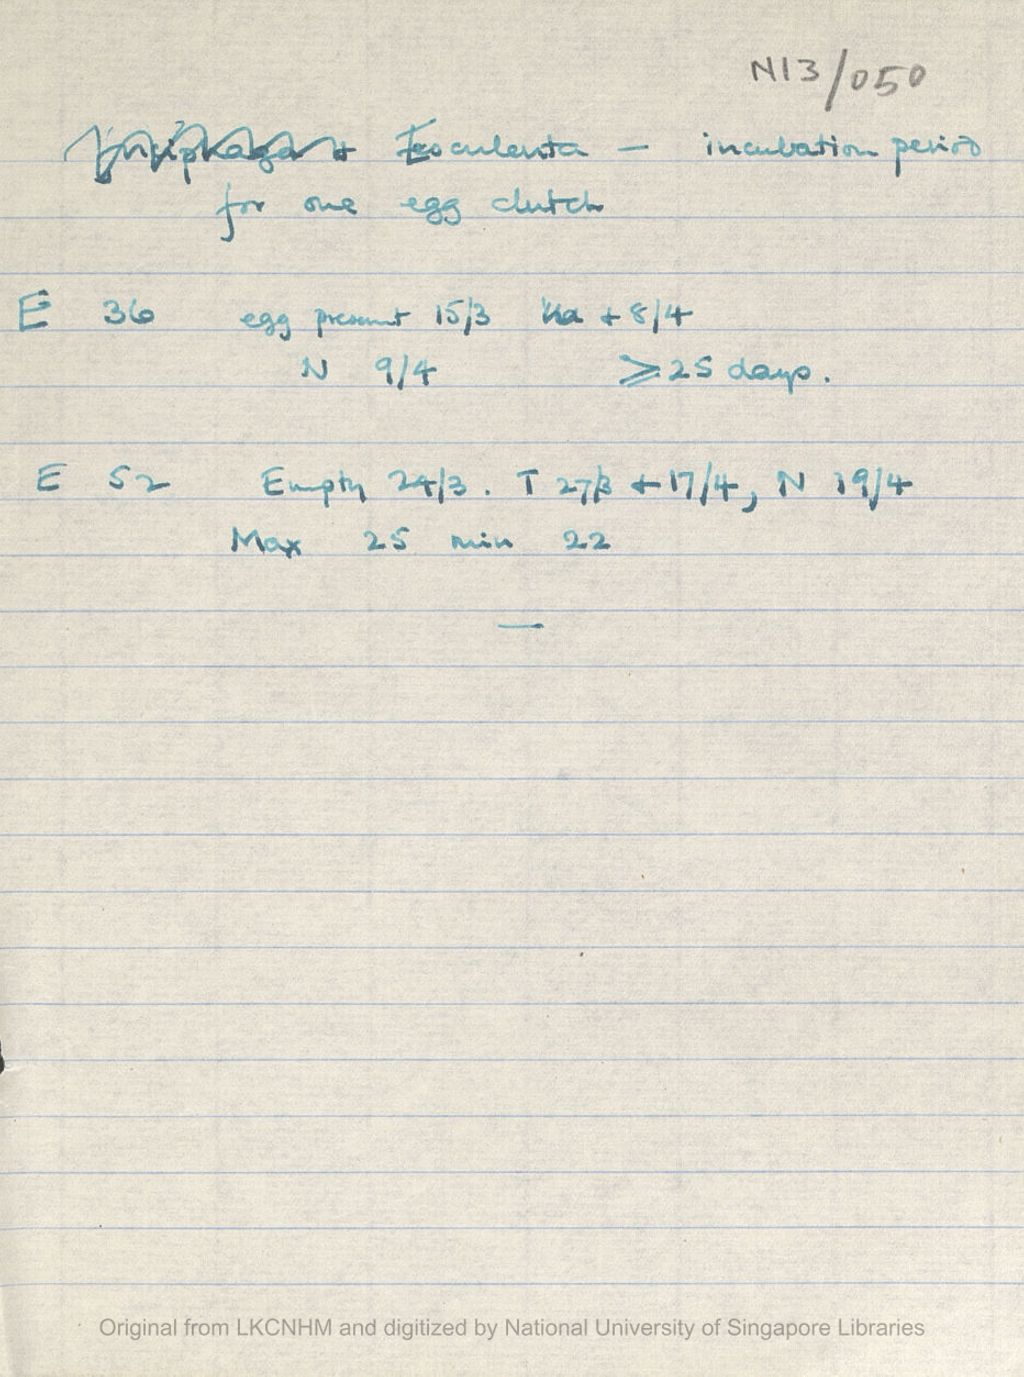 N13/050
Esculenta — incubation period
for one egg clutch
E 36 egg present 15/3 + 8/4
N 9/4 ⩾ 25 days.
E 52 Empty 24/3. T 27/3 + 17/4, N 19/4
Max 25 min 22
—
Original from LKCNHM and digitized by National University of Singapore Libraries